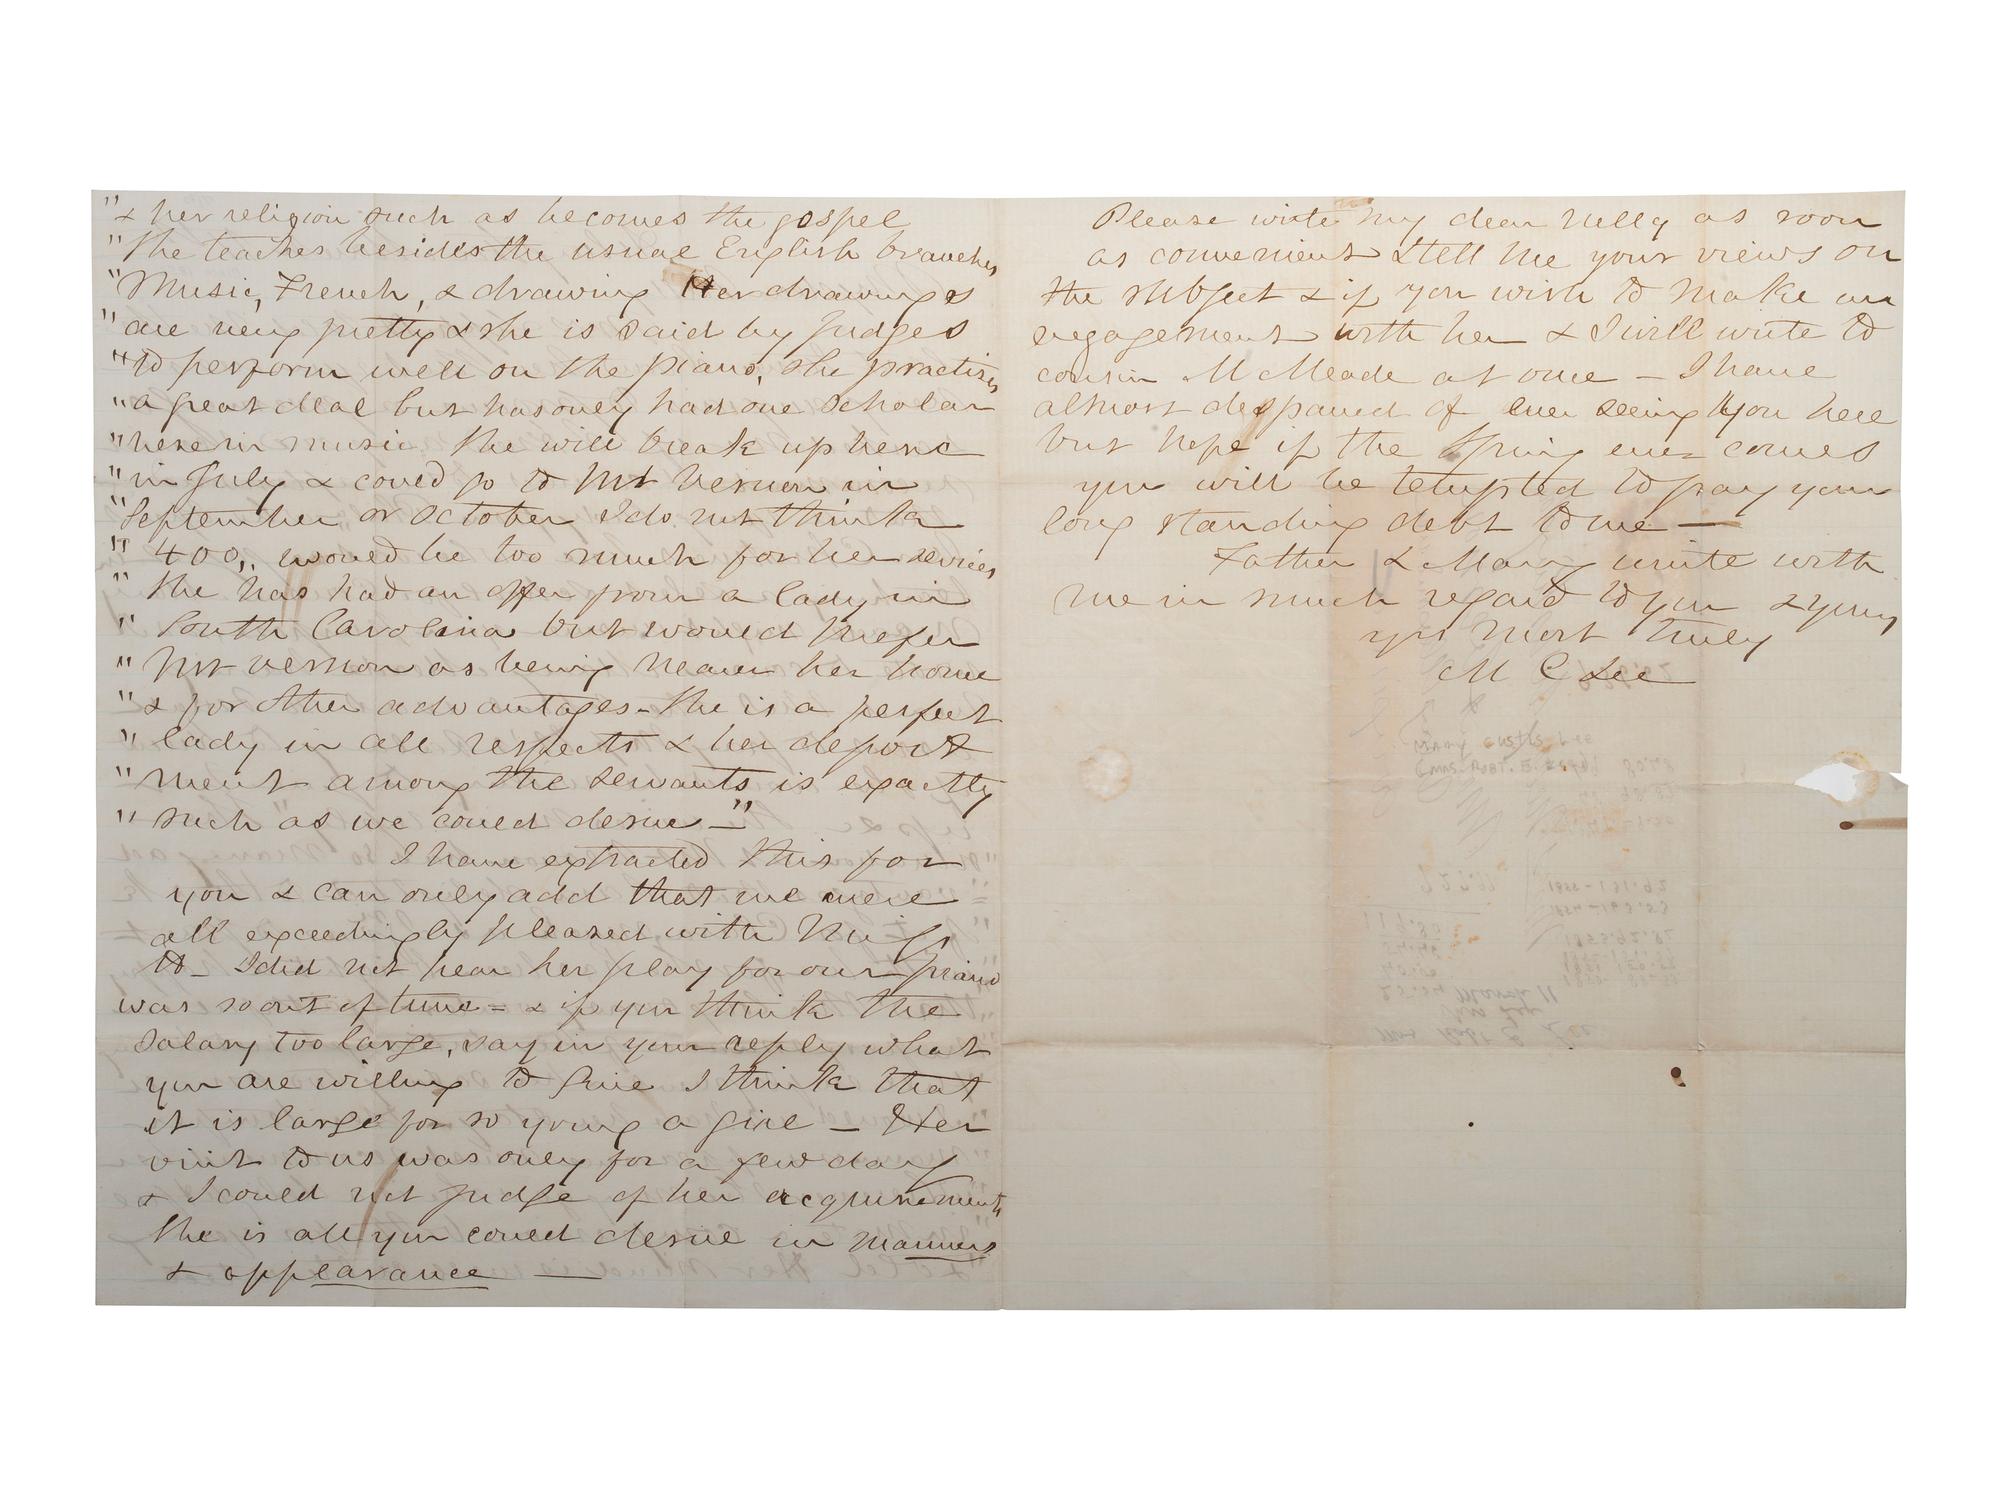 "& her religion such as becomes the gospel
"She teaches besides the usual English branches
"Music, French, & drawing Her drawings
"are very pretty & she is said by judges
"to perform well on the piano, she practises
"a great deal but has only had one scholar
"here in music. She will break up here
"in July & could go to Mt Vernon in
"September or October I do not think
" 400,, would be too much for her services
" She has had an offer from a lady in
" South Carolina but would prefer
" Mt Vernon as being nearer her home
" & for other advantages - She is a perfect
" lady in all respects & her deport
" ment among the servants is exactly
" such as we could desire —"
I have extracted this for
you & can only add that we were
all exceedingly pleased with Miss
H- I did not hear her play for our piano
was so out of tune = & if you think the
salary too large, say in your reply what
you are willing to give I think that
it is large for so young a girl — Her
visit to us was only for a few days
& I could not judge of her acquirements
She is all you could desire in manners
& appearance —
Please write my dear Nelly as soon
as convenient & tell me your views on
the subject & if you wish to make an
engagement with her & I will write to
cousin M Meade at once — I have
almost despaired of ever seeing you here
but hope if the Spring ever comes
you will be tempted to pay your
long standing debt to me —
Father & Mary unite with
me in much regard to you & yours
yrs most truly
M C Lee
Mary Custis Lee
(Mrs. Robt. E. Lee)